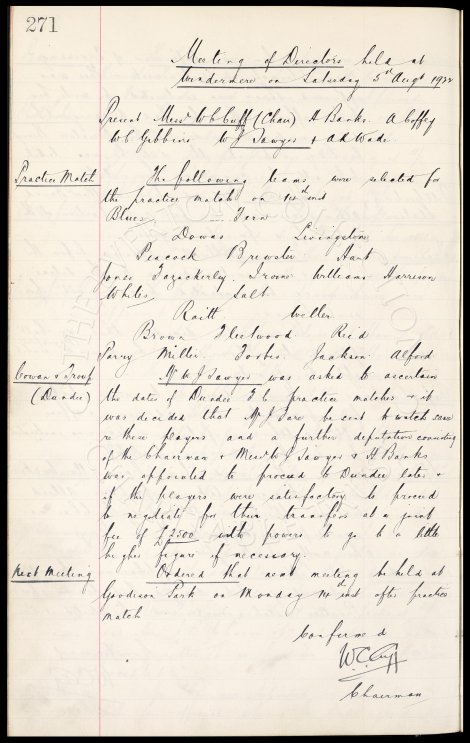 271
Meeting of Directors held at
Windermere on Saturday 5th Augt 1922
Present Messrs W C Cuff (Chair) H Banks. A Coffey
W C Gibbins W J Sawyer & A R Wade
Practice Match The following teams were selected for
the practice match on 14th inst
Blues Fern
Downs Livingstone
Peacock Brewster Hart
Jones Fazackerley. Irvine Williams Harrison
Whites Salt
Raitt Weller
Brown Fleetwood Reid
Parry Miller Forbes Jackson Alford
Cowan & Troup Mr W J Sawyer was asked to ascertain
(Dundee) the dates of Dundee F.C. practice matches & it
was decided that Mr J Fare be sent to watch same
re these players and a further deputation consisting
of the Chairman & Messrs W J Sawyer & H Banks
was appointed to proceed to Dundee later &
if the players were satisfactory to proceed
to negotiate for their transfers at a joint
fee of £2500 with powers to go to a little
higher figure if necessary.
Next Meeting Ordered that next meeting be held at
Goodison Park on Monday 14th inst after practice
match
Confirmed
W.C. Cuff
Chairman